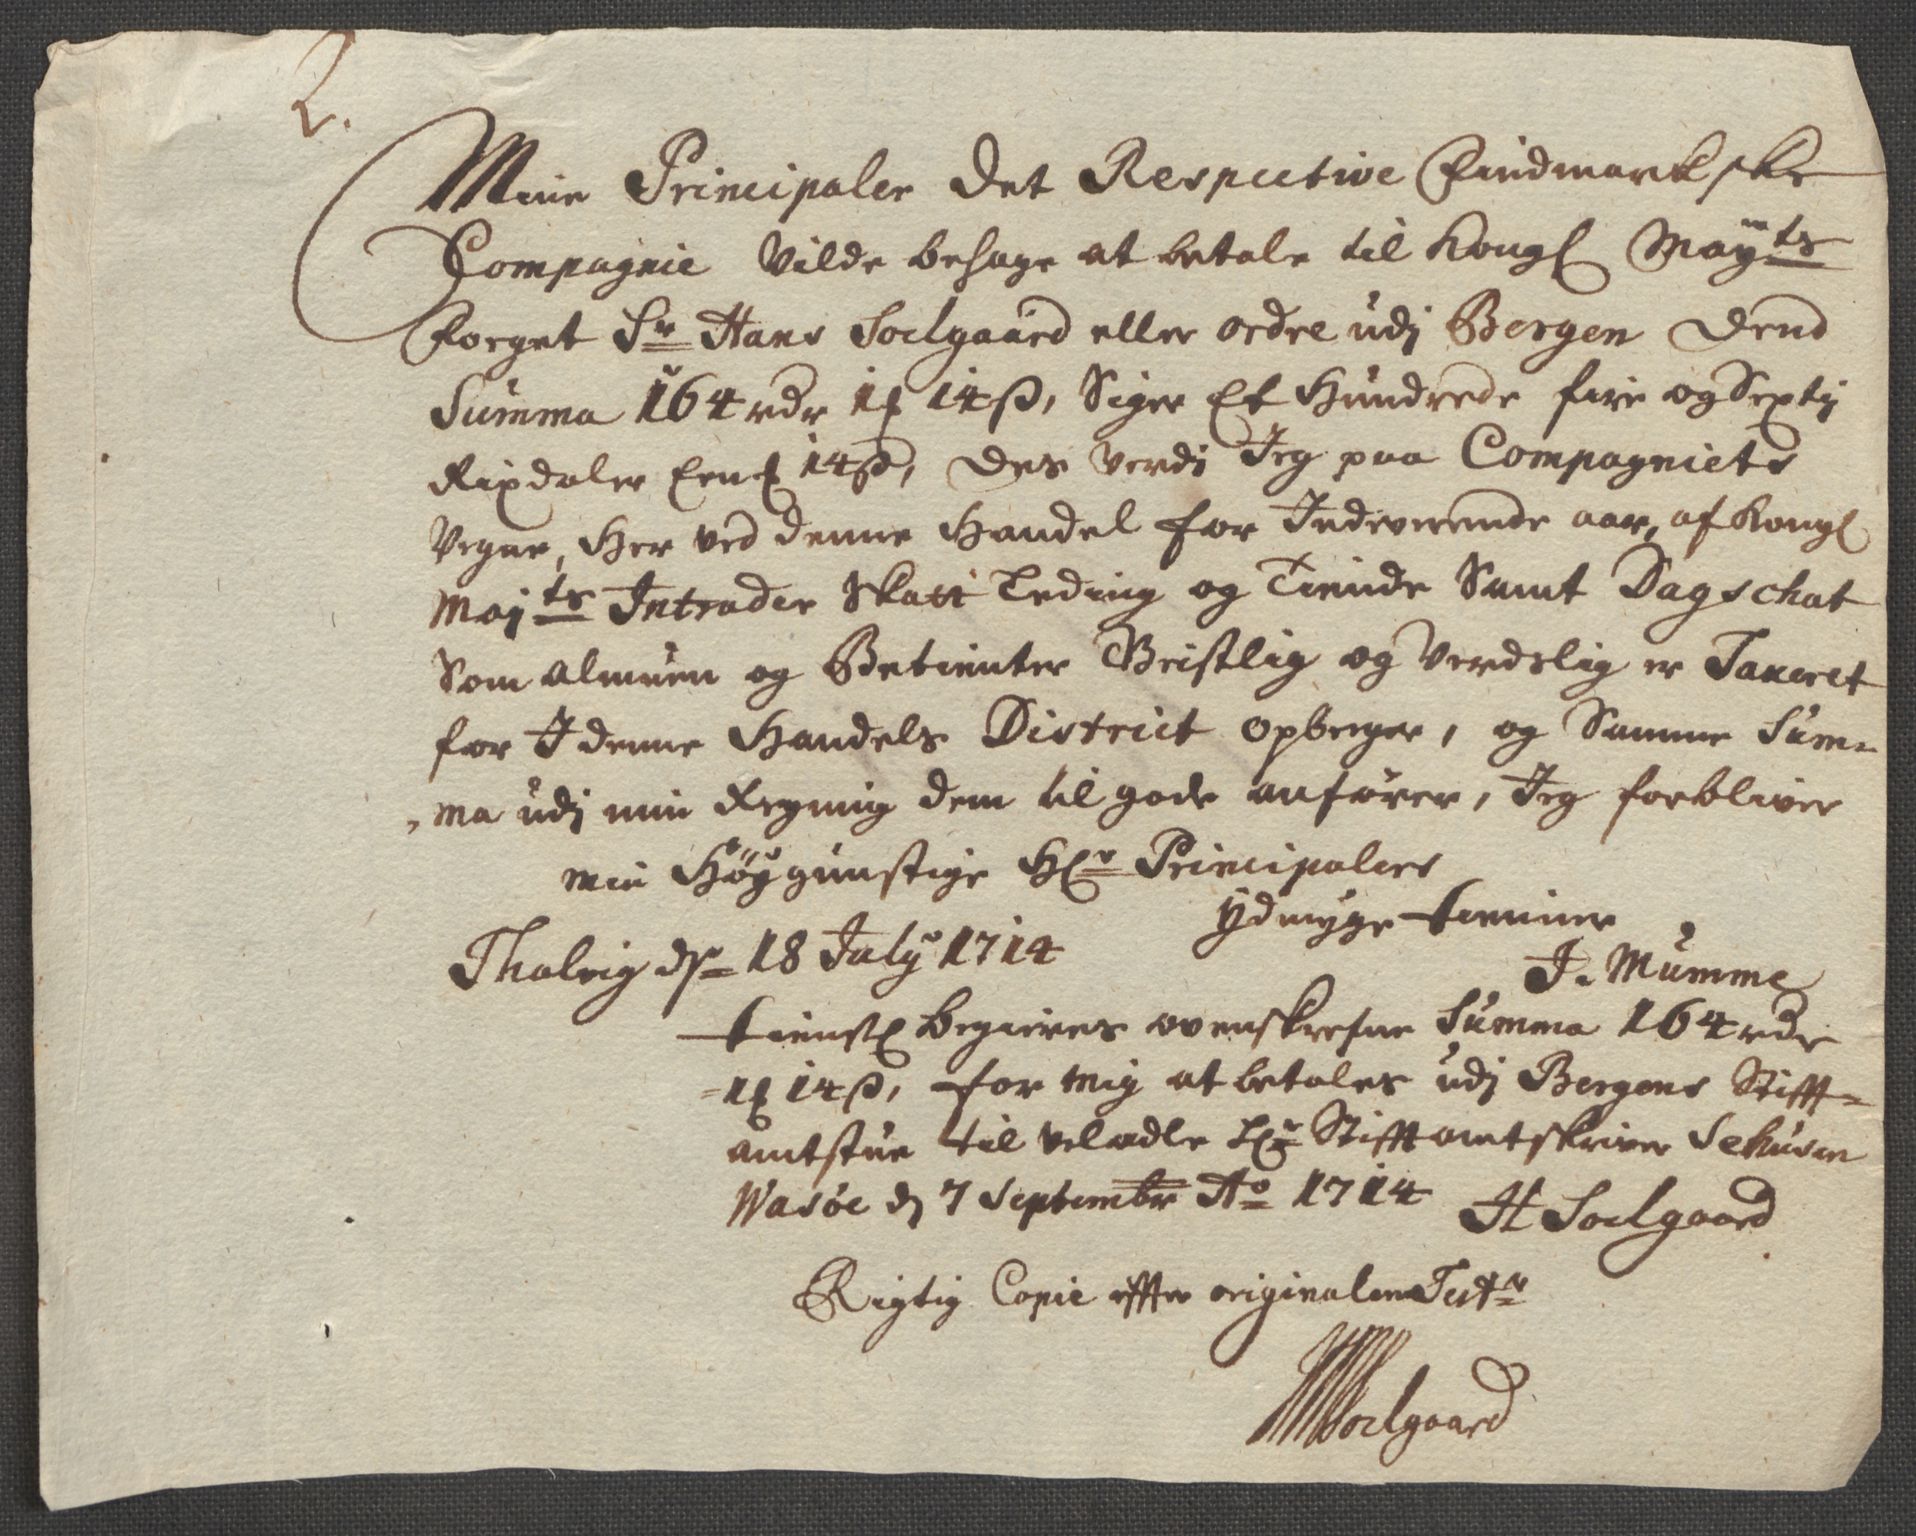 2.
Mine Principaler Det Respective Findmarkske
Compagnie Vilde behage at betale til Kongl Mayts
Foeget Sr Hans Soelgaard eller ordre udj Bergen Dend
Summa 164 rdr 1 14 ß, Siger Et Hundrede fire og Sexty
Rixdaler Een 14 ß, Des Verdj Jeg paa Compagniets
Vegne, Her ved denne Handel for Indeverende aar, af Kongl
Mayts Intrader Skatt Leding og Tiende Samt Dagschat
Som Almuen og Betienter Geistlig og Verdslig er Taxeret
for I denne Handels District opberger, og Samme Sum-
ma udj min Regning dem til gode anfører, Jeg forbliver
min Høygunstige Hr Principalers
Ydmyge tienner
Thalvig dn 18 July 1714
J. Mumme
tienstl begieres ovenskrefne Summa 164 rdr
1 14 ß, for mig at betales udj Bergens Stifft-
amtstue til Velædle Hr Stifftamtskriver Sehusen
Wasöe d 7 Septembr Ao 1714 H Soelgaard
Rigtig Copie effter originalen Testr
HSoelgaard